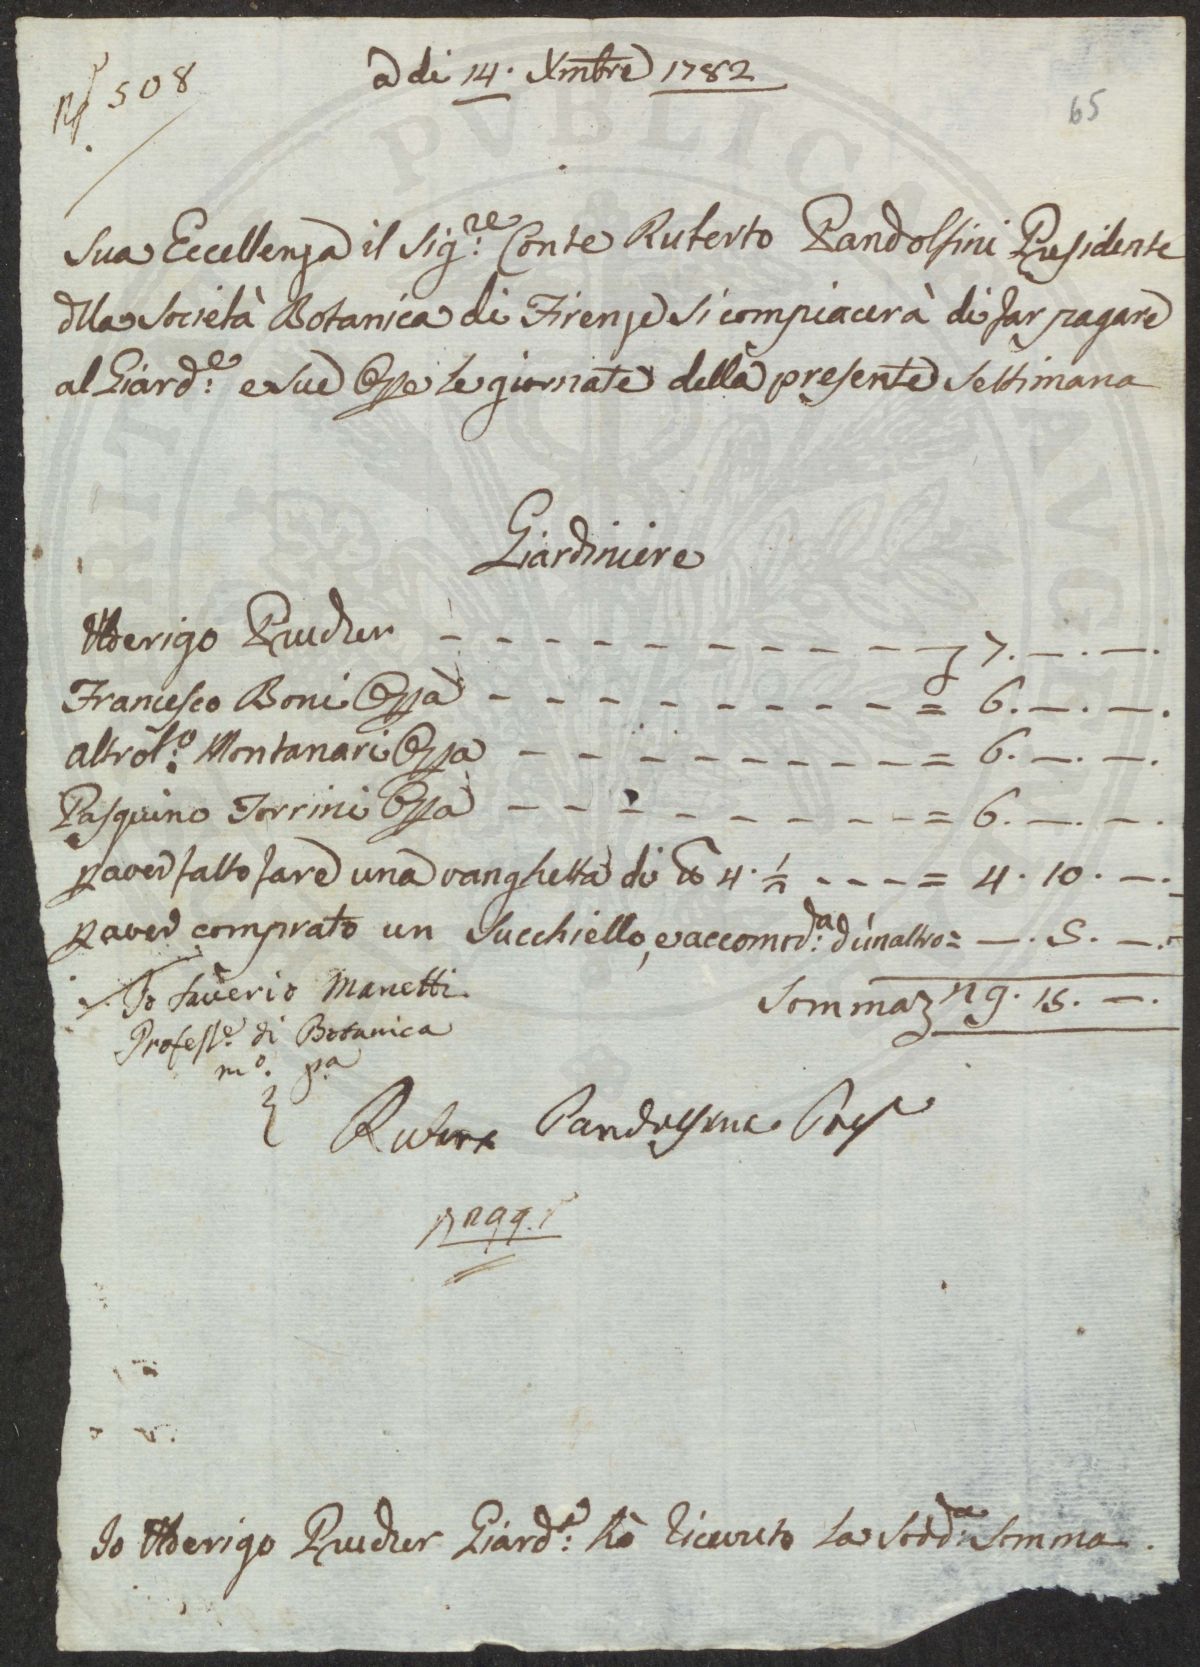 N.° 508
a di 14. Xmbre 1782
65
Sua Eccellenza il Sig:re Conte Ruberto Pandolfini Presidente
della Società Botanica di Firenze si compiacerà di far pagare
al Giard:e e sue Opre le giornate della presente Settimana
Giardiniere
Uderigo Prucher - - - - - - - - - - - - 7. —. —.
Francesco Boni Opra - - - - - - - - - = 6. —. —.
altro Montanari Opra - - - - - - - - - = 6. —. —.
Pasquino Torrini Opra - - - - - - - - - = 6. —. —.
p aver fatto fare una vanghetta di 4. ½ - - - = 4. 10. —.
p aver comprato un Succhiello, e accomod:a d'un altro = —. 5. —.
Somma 29. 15. —.
Io Saverio Manetti
Profess:e di Botanica
m:o p:a
Ruberto Pandolfini Pres
Io Uderigo Prucher Giard:e hò ricevuto la Sodd:a Somma.
PUBLICAE